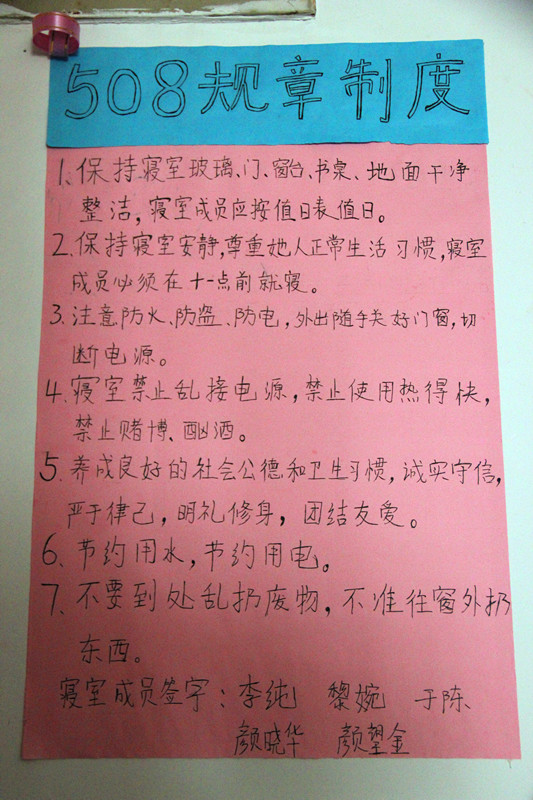 508规章制度
1、保持寝室玻璃、门、窗台、书桌、地面干净
整洁，寝室成员应按值日表值日。
2、保持寝室安静，尊重她人正常生活习惯，寝室
成员必须在十一点前就寝。
3、注意防火、防盗、防电，外出随手关好门窗，切
断电源。
4、寝室禁止乱接电源，禁止使用热得快，
禁止赌博、酗酒。
5、养成良好的社会公德和卫生习惯，诚实守信，
严于律己，明礼修身，团结友爱。
6、节约用水，节约用电。
7、不要到处乱扔废物，不准往窗外扔
东西。
寝室成员签字：李纯 黎婉 于陈、
颜晓华 颜望金